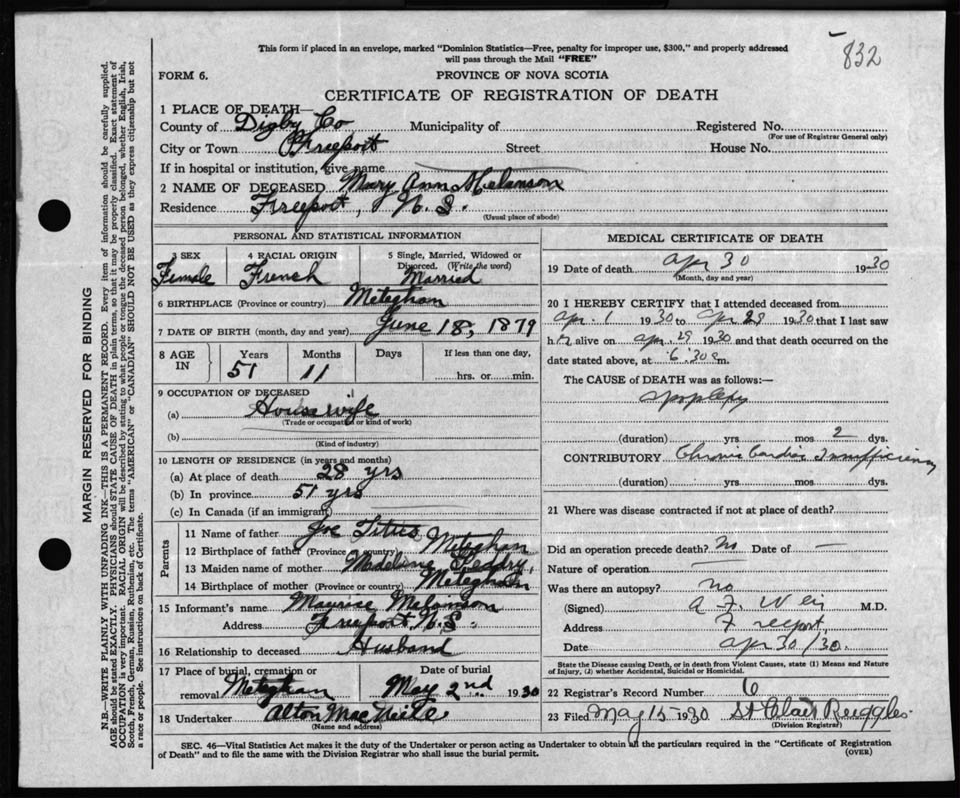 832
This form if placed in an envelope, marked "Dominion Statistics—Free, penalty for improper use, $300," and properly addressed
will pass through the Mail "FREE"
FORM 6.
PROVINCE OF NOVA SCOTIA
CERTIFICATE OF REGISTRATION OF DEATH
1 PLACE OF DEATH—
County of Digby Co Municipality of Registered No.
(For use of Registrar General only)
City or Town Freeport Street House No.
If in hospital or institution, give name
2 NAME OF DECEASED Mary Ann Melanson
Residence Freeport, N.S.
(Usual place of abode)
PERSONAL AND STATISTICAL INFORMATION
3 SEX 4 RACIAL ORIGIN 5 Single, Married, Widowed or
Divorced. (Write the word)
Female French Married
6 BIRTHPLACE (Province or country) Meteghan
7 DATE OF BIRTH (month, day and year) June 18, 1879
8 AGE IN Years Months Days If less than one day,
51 11 hrs. or min.
9 OCCUPATION OF DECEASED
(a) Housewife
(Trade or occupation or kind of work)
(b)
(Kind of industry)
10 LENGTH OF RESIDENCE (in years and months)
(a) At place of death 28 yrs
(b) In province 51 yrs
(c) In Canada (if an immigrant)
Parents
11 Name of father Joe Titus
12 Birthplace of father (Province or country) Meteghan
13 Maiden name of mother Madeline
14 Birthplace of mother (Province or country) Meteghan
15 Informant's name Maurice Melanson
Address Freeport N.S.
16 Relationship to deceased Husband
17 Place of burial, cremation or Date of burial
removal Meteghan May 2nd 1930
18 Undertaker Alton MacNeile
(Name and address)
MEDICAL CERTIFICATE OF DEATH
19 Date of death Apr 30 1930
(Month, day and year)
20 I HEREBY CERTIFY that I attended deceased from
Apr. 1 1930 to Apr 29 1930 that I last saw
h alive on Apr. 29 1930 and that death occurred on the
date stated above, at 6:30 a m.
The CAUSE of DEATH was as follows:—
Apoplexy
(duration) yrs. mos 2 dys.
CONTRIBUTORY Chronic Cardiac Insufficiency
(duration) yrs. mos. dys.
21 Where was disease contracted if not at place of death?
Did an operation precede death? No Date of —
Nature of operation —
Was there an autopsy? no
(Signed) A F Weir M.D.
Address Freeport,
Date Apr 30/30.
State the Disease causing Death, or in death from Violent Causes, state (1) Means and Nature
of Injury, (2) whether Accidental, Suicidal or Homicidal.
22 Registrar's Record Number 6
23 Filed May 15 1930 St Clair Ruggles
(Division Registrar)
SEC. 46—Vital Statistics Act makes it the duty of the Undertaker or person acting as Undertaker to obtain all the particulars required in the "Certificate of Registration
of Death" and to file the same with the Division Registrar who shall issue the burial permit.
(OVER)
MARGIN RESERVED FOR BINDING
N.B.—WRITE PLAINLY WITH UNFADING INK—THIS IS A PERMANENT RECORD. Every item of information should be carefully supplied.
AGE should be stated EXACTLY. PHYSICIANS should STATE CAUSE OF DEATH in plain terms, so that it may be properly classified. Exact statement of
OCCUPATION is very important. RACIAL ORIGIN will be described by stating to what people or tongue the deceased person belonged, whether English, Irish,
Scotch, French, German, Russian, Ruthenian, etc. The terms "AMERICAN" or "CANADIAN" SHOULD NOT BE USED as they express citizenship but not
a race or people. See instructions on back of Certificate.